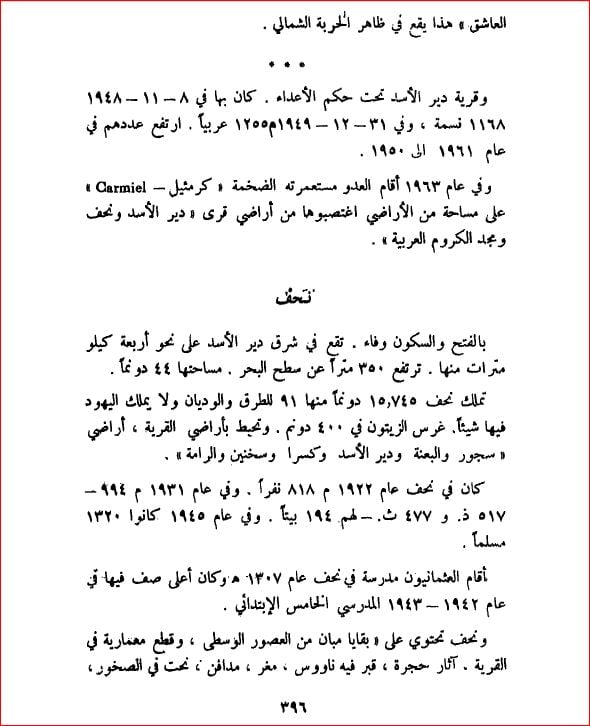 العاشق » هذا يقع في ظاهر الخربة الشمالي .
* * *
وقرية دير الأسد تحت حكم الأعداء . كان بها في ٨ – ١١ – ١٩٤٨
١١٦٨ نسمة ، وفي ٣١ – ١٢ – ١٩٤٩م١٢٥٥ عربياً . ارتفع عددهم في
عام ١٩٦١ الى ١٩٥٠ .
وفي عام ١٩٦٣ أقام العدو مستعمرته الضخمة « كرمئيل – Carmiel »
على مساحة من الأراضي اغتصبوها من أراضي قرى « دير الأسد ونحف
ومجد الكروم العربية » .
نَحْف
بالفتح والسكون وفاء . تقع في شرق دير الأسد على نحو أربعة كيلو
مترات منها . ترتفع ٣٥٠ متراً عن سطح البحر . مساحتها ٤٤ دونماً .
تملك نحف ١٥,٧٤٥ دونماً منها ٩١ للطرق والوديان ولا يملك اليهود
فيها شيئاً. غرس الزيتون في ٤٠٠ دونم . وتحيط بأراضي القرية ، أراضي
« سجور والبعنة ودير الأسد وكسرا وسخنين والرامة » .
كان في نحف عام ١٩٢٢ م ٨١٨ نفراً . وفي عام ١٩٣١ م ٩٩٤ –
٥١٧ ذ. و ٤٧٧ ث. – لهم ١٩٤ بيتاً . وفي عام ١٩٤٥ كانوا ١٣٢٠
مسلماً .
أقام العثمانيون مدرسة في نحف عام ١٣٠٧ ه وكان أعلى صف فيها في
عام ١٩٤٢ – ١٩٤٣ المدرسي الخامس الإبتدائي .
ونحف تحتوي على « بقايا مبان من العصور الوسطى ، وقطع معمارية في
القرية . آثار حجرة ، قبر فيه ناووس ، مغر ، مدافن ، نحت في الصخور ،
٣٩٦